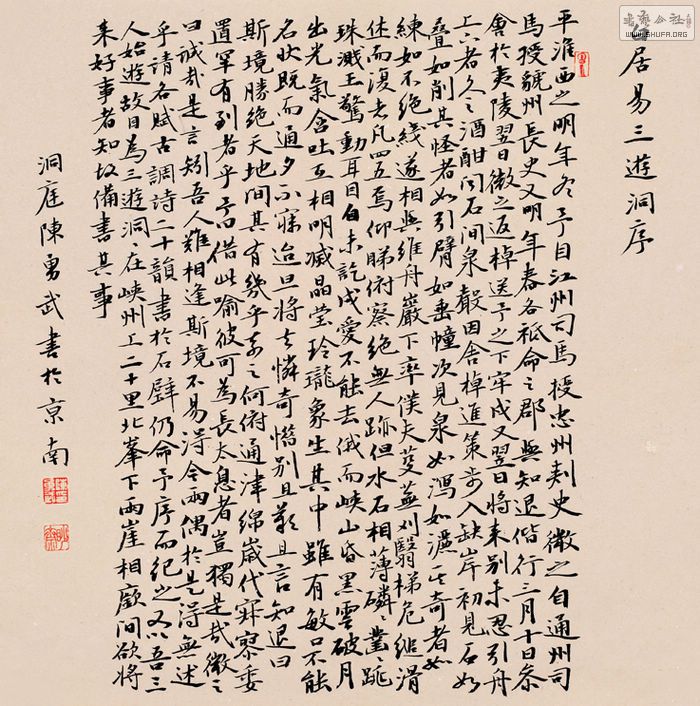 白居易三遊洞序
平淮西之明年冬予自江州司馬授忠州刺史微之自通州司
馬授虢州長史又明年春各祗命之郡與知退偕行三月十日叅
會於夷陵翌日微之返棹送予之下牢戍又翌日將来别未忍引舟
上下者久之酒酣聞石間泉聲因舍棹進策步入缺岸初見石如
疊如削其怪者如引臂如垂幢次見泉如瀉如灑其奇者如
練如不絕綫遂相與維舟巖下率僕夫芟蕪刈翳梯危縋滑
休而復者凡四五焉仰睇俯察絕無人跡但水石相薄磷々鑿々跳
珠濺玉驚動耳目自未訖戌愛不能去俄而峽山昏黑雲破月
出光氣含吐互相明滅晶瑩玲瓏象生其中雖有敏口不能
名狀既而通夕不寐迨旦將去憐奇惜别且歎且言知退曰
斯境勝絕天地間其有幾乎如之何俯通津綿歲代寂寥委
置罕有到者乎予曰借此喻彼可為長太息者豈獨是哉微之
曰誠哉是言矧吾人難相逢斯境不易得今兩偶於是得無述
乎請各賦古調詩二十韻書於石壁仍命予序而紀之又以吾三
人始遊故目為三遊洞々在峽州上二十里北峯下兩崖相廞間欲將
来好事者知故備書其事
洞庭陳勇武書於京南
WWW.SHUFA.ORG